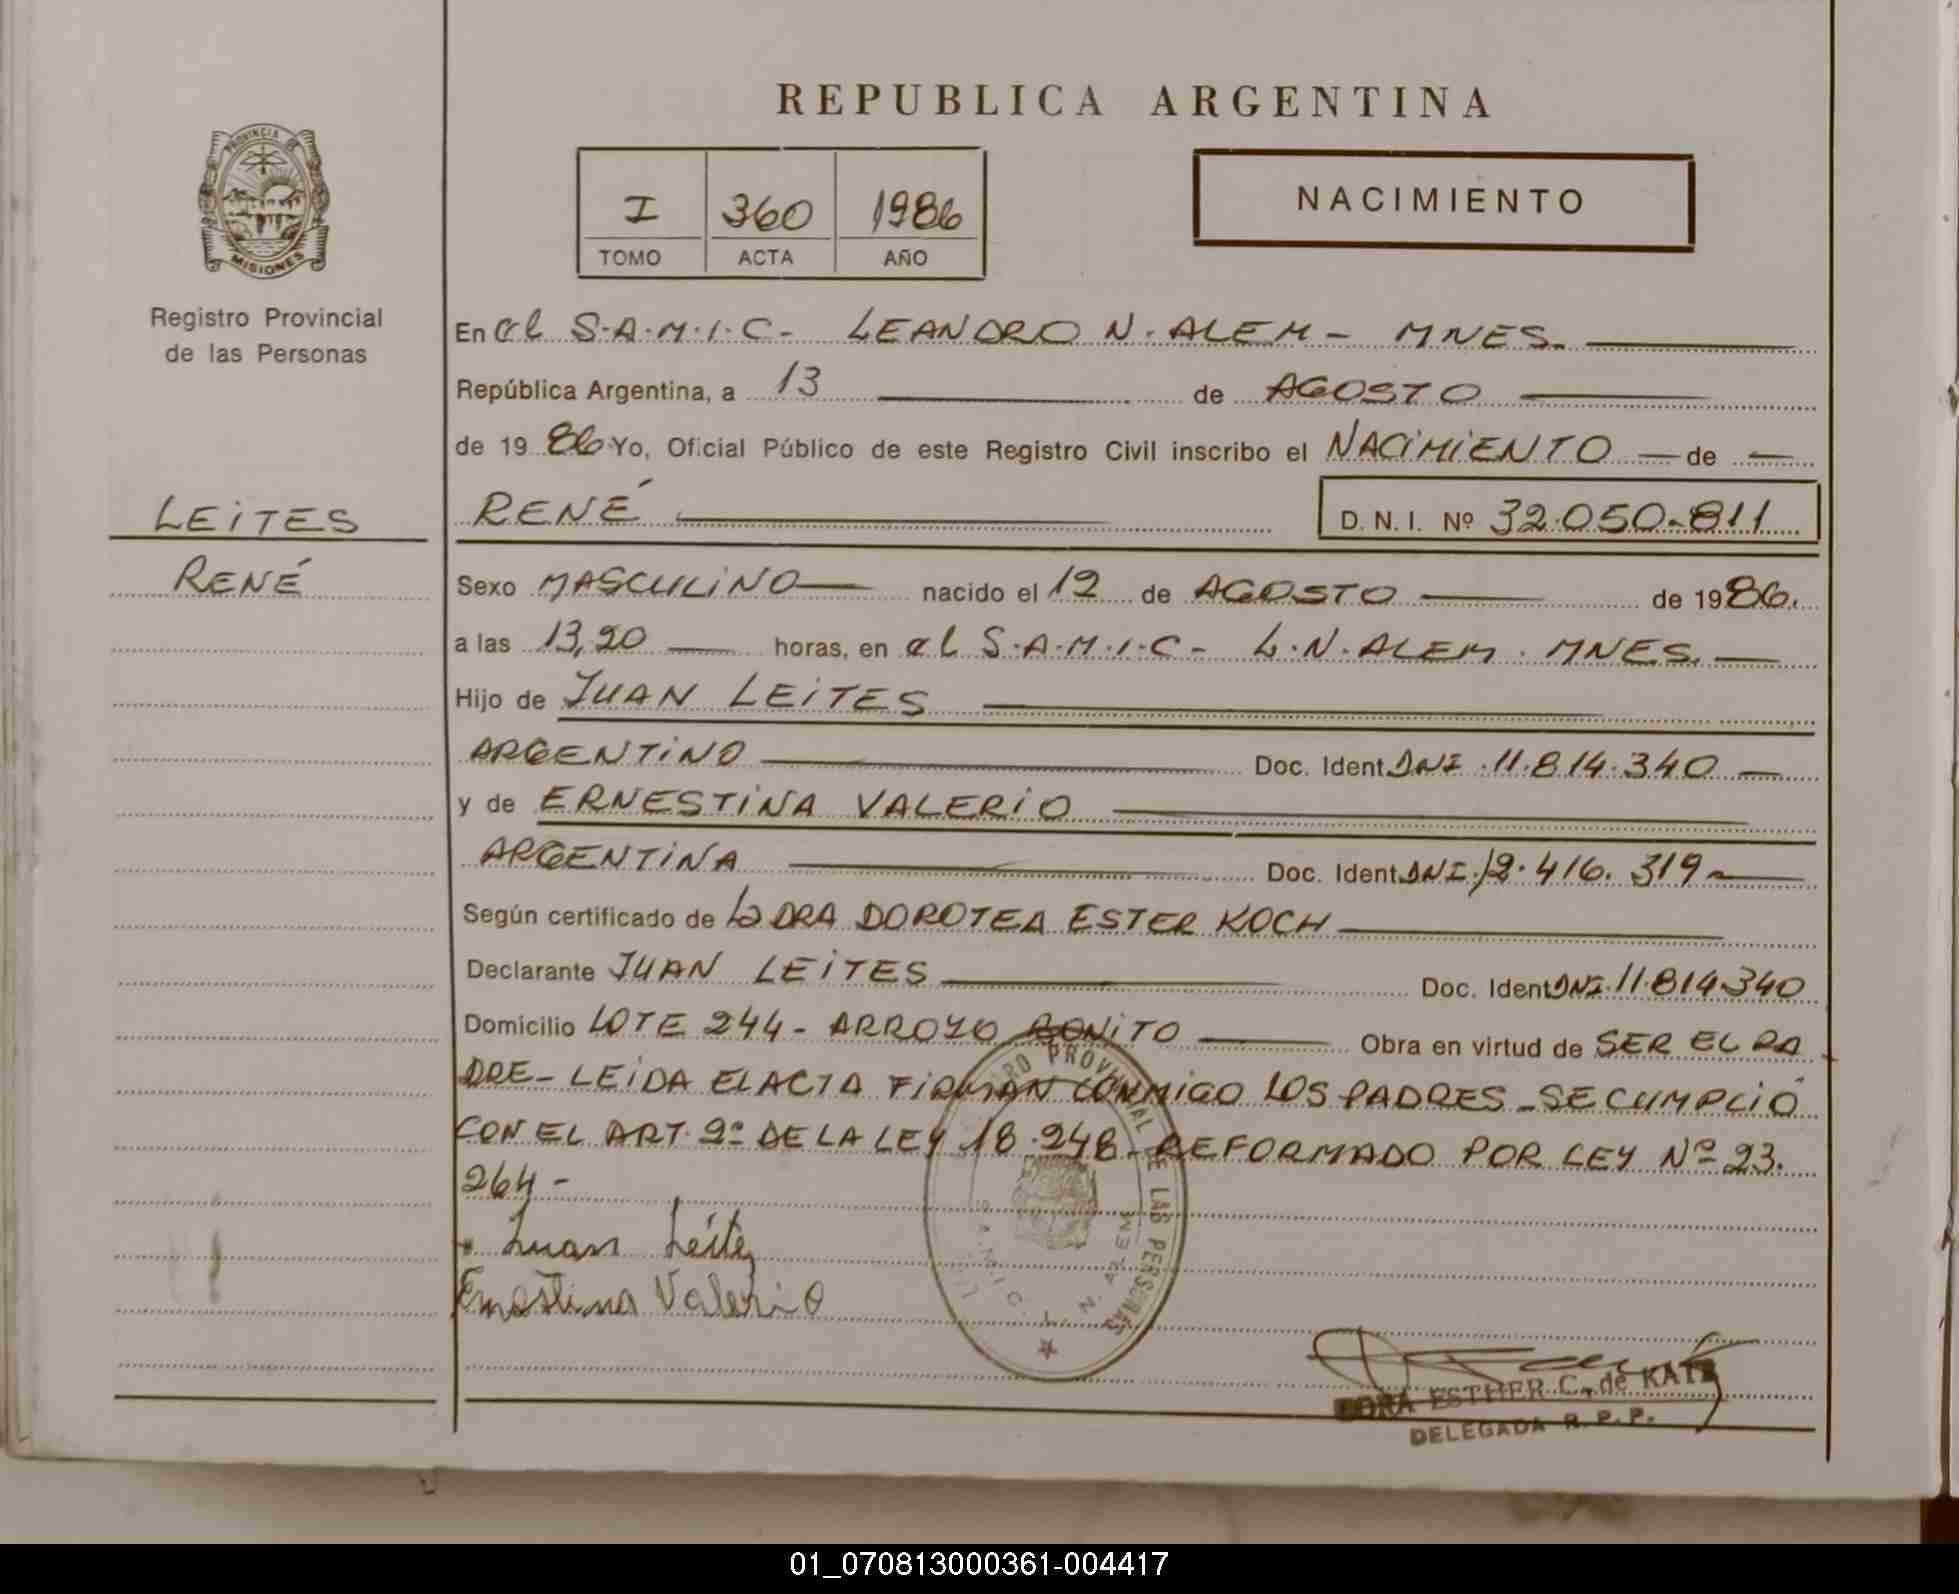 REPUBLICA ARGENTINA
PROVINCIA DE
MISIONES
Registro Provincial
de las Personas
I 360 1986
TOMO ACTA AÑO
NACIMIENTO
En el S.A.M.I.C- LEANDRO N. ALEM - MNES.
República Argentina, a 13 de AGOSTO
de 1986 Yo, Oficial Público de este Registro Civil inscribo el NACIMIENTO de
LEITES
RENÉ
RENÉ D. N. I. Nº 32.050.811
Sexo MASCULINO nacido el 12 de AGOSTO de 1986.
a las 13,20 horas, en el S.A.M.I.C- L.N. ALEM. MNES.
Hijo de JUAN LEITES
ARGENTINO Doc. Ident. DNI. 11.814.340
y de ERNESTINA VALERIO
ARGENTINA Doc. Ident. DNI. 12.416.319
Según certificado de LA DRA DOROTEA ESTER KOCH
Declarante JUAN LEITES Doc. Ident. DNI. 11.814.340
Domicilio LOTE 244 - ARROYO BONITO Obra en virtud de SER EL PA
DRE - LEIDA EL ACTA FIRMAN CONMIGO LOS PADRES - SE CUMPLIÓ
CON EL ART. 2º DE LA LEY 18.248 - REFORMADO POR LEY Nº 23.
264 -
Juan Leites
Ernestina Valerio
REGISTRO PROVINCIAL DE LAS PERSONAS
S.A.M.I.C. L. N. ALEM
ESTHER C. de KATZ
DELEGADA R. P. P.
01_070813000361-004417